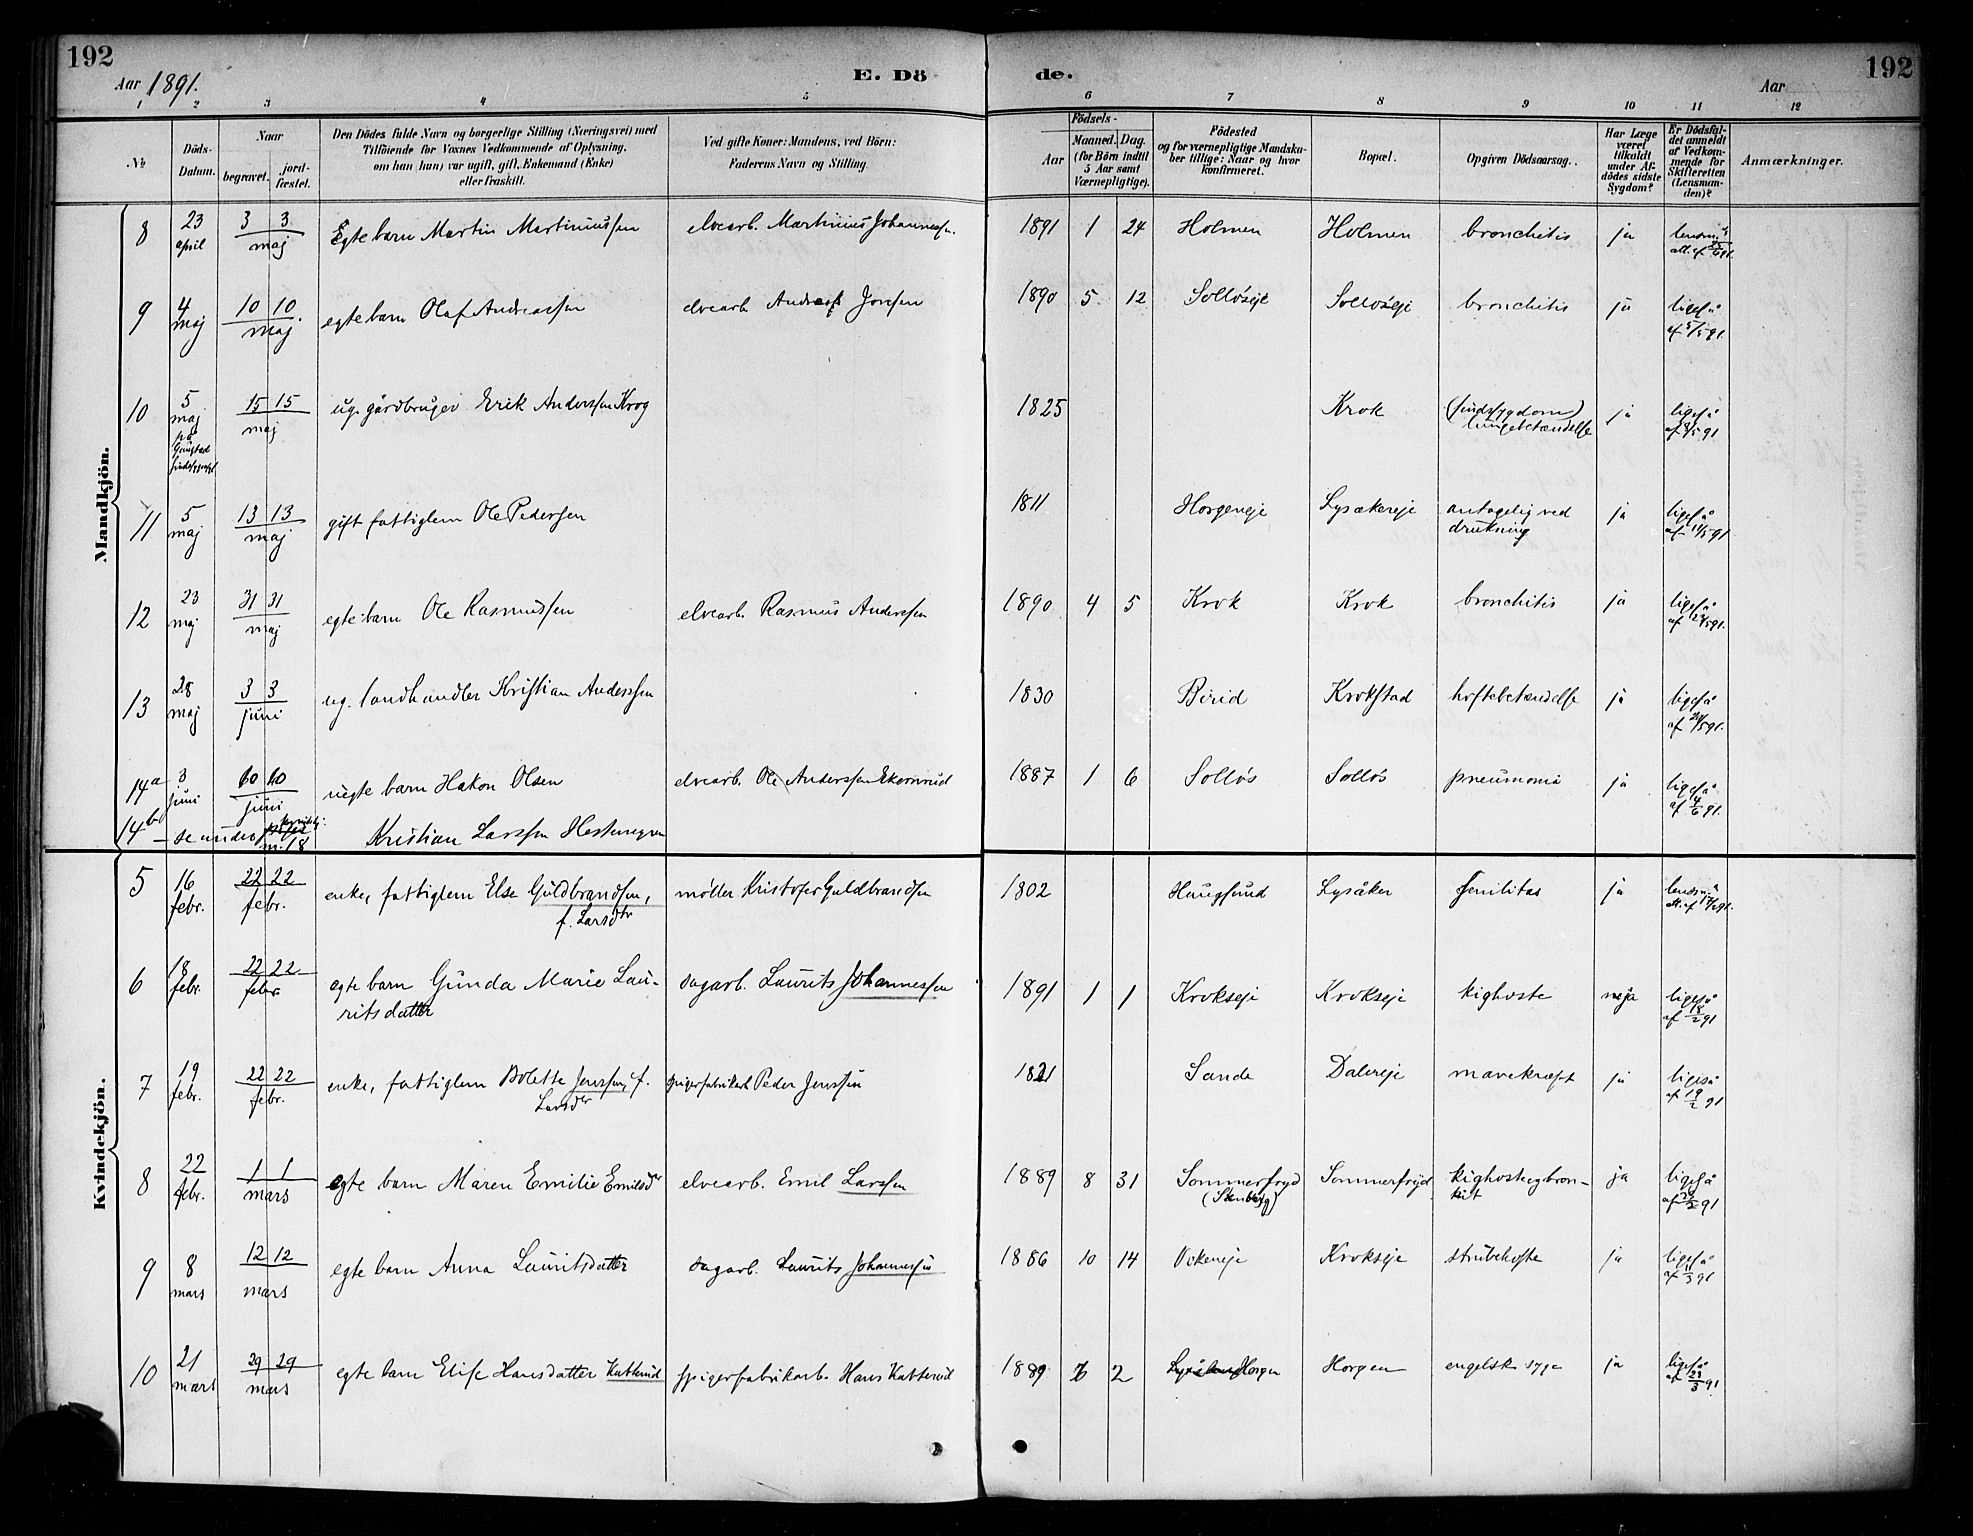 192
Aar 1891.
E. Dö
de.
Aar
192
1 2 3 4 5 6 7 8 9 10 11 12
№
Döds-
Datum.
Naar
begravet.
jord-
fæstet.
Den Dödes fulde Navn og borgerlige Stilling (Næringsvei) med
Tilföiende for Voxnes Vedkommende af Oplysning,
om han (hun) var ugift, gift, Enkemand (Enke)
eller fraskilt.
Ved gifte Koner: Mandens, ved Börn:
Faderens Navn og Stilling.
Födsels-
Aar
Maaned. Dag.
(for Börn indtil
5 Aar samt
Værnepligtige).
Födested
og for værnepligtige Mandska-
ber tillige: Naar og hvor
konfirmeret.
Bopæl.
Opgiven Dödsaarsag.
Har Læge
været
tilkaldt
under Af-
dödes sidste
Sygdom?
Er Dödsfal-
det anmeldt
af Vedkom-
mende for
Skifteretten
(Lensman-
den)?
Anmærkninger.
Mandkjön.
8 23 april 3 3 maj Egte barn Martin Martiniussen elvearb. Martinius Johannessen. 1891 1 24 Holmen Holmen bronchitis ja lensm.s att. af
9 4 maj 10 10 maj. egte barn Olaf Andreassen elvearb. Andreas Jonsen 1890 5 12 Solløseje Solløseje bronchitis ja ligeså af 5/5 91.
10 5 maj på Gaustad sindssygeasyl 15 15 maj ug. gårdbruger Erik Anderssen Krog 1825 Krok (sindssygdom) lungebetændelse ja ligeså af 8/5 91
11 5 maj 13 13 maj gift fattiglem Ole Pedersen 1811 Horgeneje Lysakereje antagelig ved drukning ja ligeså af 11/5 91
12 23 maj 31 31 maj egte barn Ole Rasmussen elvearb. Rasmus Anderssen 1890 4 5 Krok Krok bronchitis ja ligeså af
13 28 maj 3 3 juni ug. landhandler Kristian Anderssen 1830 Birid Krokstad hoftebetændelse ja ligeså af
14a 3 juni 10 10 juni uegte barn Hakon Olsen elvearb. Ole Anderssen Ekornrud 1887 1 6 Solløs Solløs pneumoni ja ligeså af 4/6 91.
14b – se under kvindekj. n. 18 Kristian Larssen Hestengen
Kvindekjön.
5 16 febr. 22 22 febr. enke, fattiglem Else Guldbrandsen, f. Larsdtr møller Kristofer Guldbrandsen 1802 Haugsund Lysåker senilitas ja lensm.s att. af
6 18 febr. 22 22 febr. egte barn Gunda Marie Lau-
ritsdatter sagarb. Laurits Johannessen 1891 1 1 Krokseje Krokseje kighoste ja ligeså af 18/2 91
7 19 febr. 22 22 febr. enke, fattiglem Bolette Jenssen, f. Larsdtr spigerfabrikarb. Peder Jenssen 1821 Sande Dalereje mavekræft ja ligeså af 19/2 91
8 22 febr. 1 1 mars egte barn Maren Emilie Emilsdtr elvearb. Emil Larssen 1889 8 31 Sommerfryd (Stenberg) Sommerfryd kighoste og bron-
kit ja ligeså af
9 8 mars 12 12 mars egte barn Anna Lauritsdatter sagarb. Laurits Johannessen 1886 10 14 Vikeneje Krokseje strubehoste ja ligeså af 11/3 91
10 21 mars 29 29 mars egte barn Elise Hansdatter Katterud spigerfabrikarb. Hans Katterud 1889 2 Horgen Horgen engelsk syge ja ligeså af 23/3 91